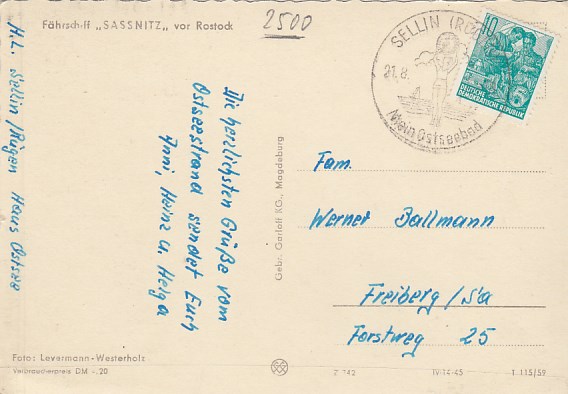 Fährschiff „SASSNITZ„ vor Rostock
2500
SELLIN
21.8.
Mein Ostseebad
10
5
DEUTSCHE
DEMOKRATISCHE REPUBLIK
H.L. Sellin/Rügen Haus Ostsee
Die herzlichsten Grüße vom
Ostseestrand sendet Euch
Anni, Heinz u. Helga
Gebr. Garloff KG., Magdeburg
Fam.
Werner Ballmann
Freiberg /Sa
Forstweg 25
Foto: Levermann-Westerholz
Verbraucherpreis DM -.20
IV-14-45
T 115/59